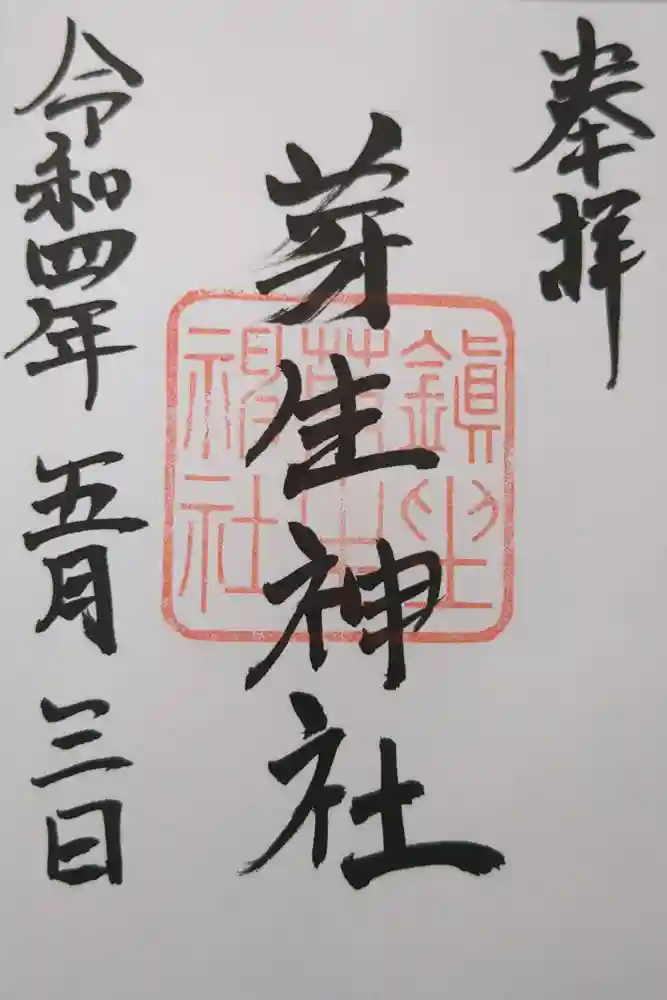 奉拝
芽生神社
令和四年
五月
三日
鎮坐
社